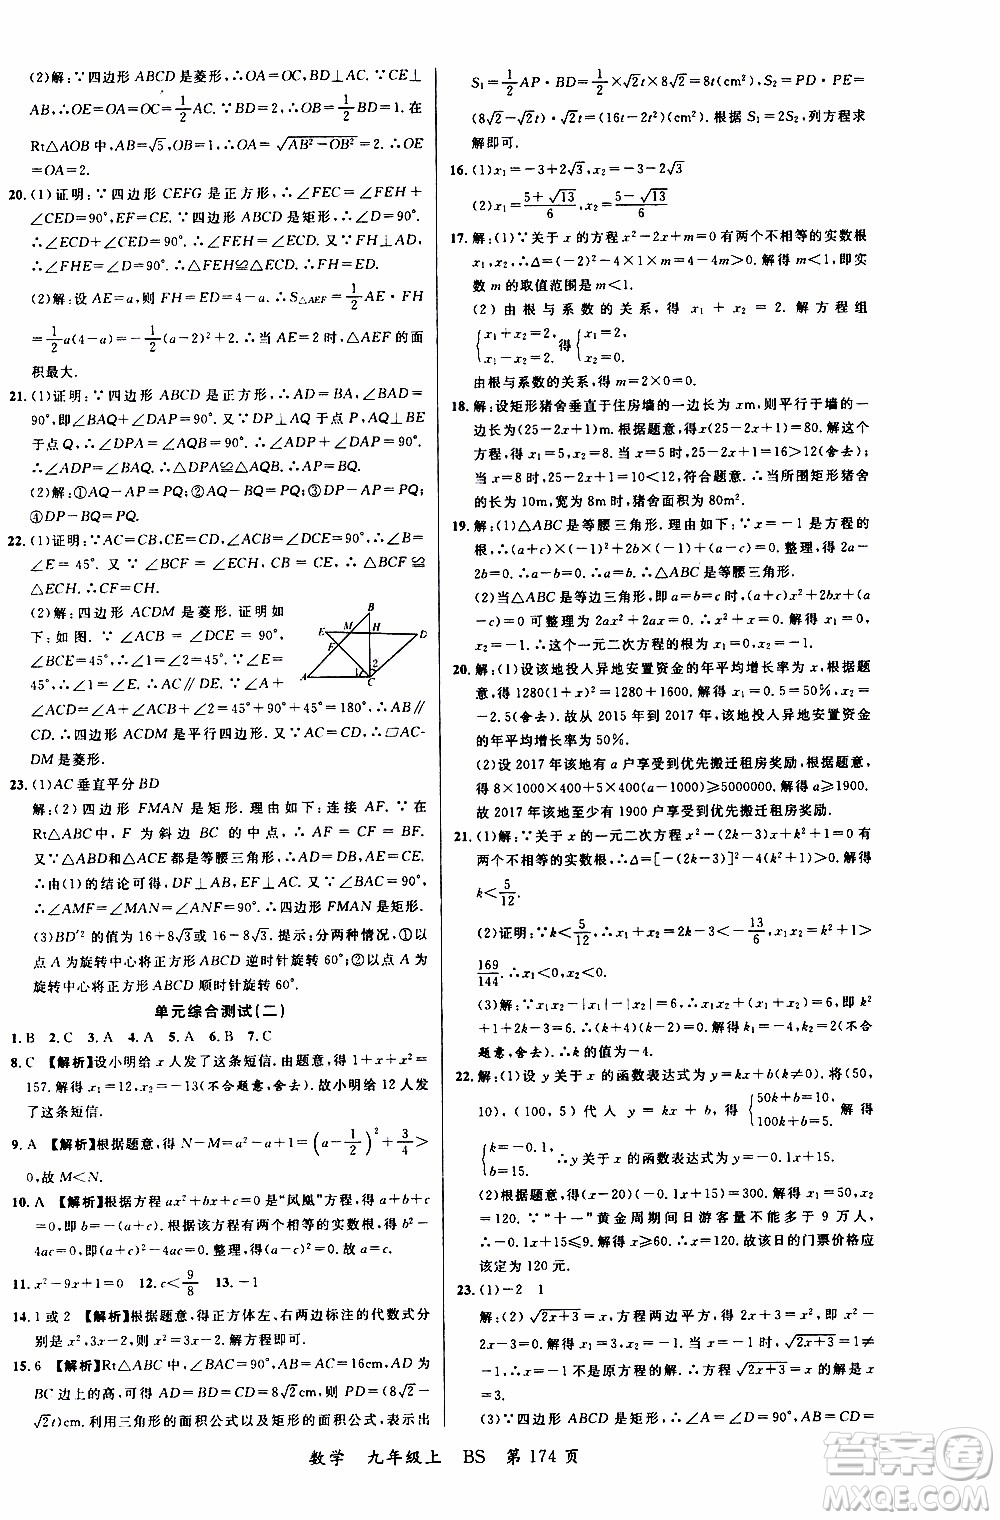 (2)解:∵四边形 ABCD 是菱形,∴OA=OC,BD⊥AC.∵CE⊥
AB,∴OE=OA=OC=1/2AC.∵BD=2,∴OB=1/2BD=1.在
Rt△AOB 中,AB=√5,OB=1,∴OA=√(AB²-OB²)=2,∴OE
=OA=2.
20.(1)证明:∵四边形 CEFG 是正方形,∴∠FEC=∠FEH+
∠CED=90°,EF=CE.∵四边形 ABCD 是矩形,∴∠D=90°.
∴∠ECD+∠CED=90°.∴∠FEH=∠ECD.∵FH⊥AD,
∴∠FHE=∠D=90°.∴△FEH≌△ECD.∴FH=ED.
(2)解:设 AE=a,则 FH=ED=4-a.∴S△AEF=1/2AE·FH
=1/2a(4-a)=-1/2(a-2)²+2.∴当 AE=2 时,△AEF 的面
积最大.
21.(1)证明:∵四边形 ABCD 是正方形,∴AD=BA,∠BAD=
90°,即∠BAQ+∠DAP=90°.又∵DP⊥AQ 于点 P,AQ⊥BE
于点 Q,∴∠DPA=∠AQB=90°,∠ADP+∠DAP=90°.
∴∠ADP=∠BAQ.∴△DPA≌△AQB.∴AP=BQ.
(2)解:①AQ-AP=PQ;②AQ-BQ=PQ;③DP-AP=PQ;
④DP-BQ=PQ.
22.(1)证明:∵AC=CB,CE=CD,CB=CE,∴AC=CD,∠B=
∠E=45°.又∵∠1=∠2,∠ACB=∠DCE=90°,∴△ACF≌
△ECH.∴CF=CH.
(2)解:四边形 ACDM 是菱形.证明如
下:如图.∵∠ACB=∠DCE=90°,
∠BCE=45°,∴∠1=∠2=45°.又∵∠E
=45°,∴∠1=∠E.∴AC∥DE.∵∠A+
∠ACD=∠A+∠ACB+∠2=45°+90°+45°=180°,∴AM∥
CD.∴四边形 ACDM 是平行四边形.又∵AC=CD,∴▱AC-
DM是菱形.
23.(1)AC垂直平分BD
解:(2)四边形 FMAN 是矩形.理由如下:连接 AF.∵在
Rt△ABC 中,F 为斜边 BC 的中点,∴AF=CF=BF.
又∵△ABD和△ACE都是等腰三角形,∴AD=DB,AE=CE.
∴由(1)的结论可得,DF⊥AB,EF⊥AC.又∵∠BAC=90°,
∴∠AMF=∠MAN=∠ANF=90°.∴四边形 FMAN 是矩形.
(3)BD′²的值为16+8√3或16-8√3.提示:分两种情况,①以
点 A 为旋转中心将正方形 ABCD 逆时针旋转 60°;②以点 A 为
旋转中心将正方形 ABCD 顺时针旋转 60°.
单元综合测试(二)
1.B 2.C 3.A 4.A 5.A 6.B 7.C
8.C 【解析】设小明给 x 人发了这条短信.由题意,得 1+x+x²=
157.解得 x₁=12,x₂=-13(不合题意,舍去).故小明给 12 人发
了这条短信.
9.A 【解析】根据题意,得 N-M=a²-a+1=(a-1/2)²+3/4>
0,故 M<N.
10.A 【解析】根据方程 ax²+bx+c=0 是“凤凰”方程,得 a+b+c
=0,即 b=-a-c.根据该方程有两个相等的实数根,得 b²-
4ac=0.即(a+c)²-4ac=0.整理,得(a-c)²=0.故 a=c.
11.x²-9x+1=0 12.c<9/8 13.-1
14.1 或 2 【解析】根据题意,得正方体左、右两边标注的代数式分
别是 x²,3x-2,则 x²=3x-2.解方程即可.
15.6 【解析】Rt△ABC 中,∠BAC=90°,AB=AC=16cm,AD为
BC边上的高,可得 AD=BD=CD=8√2cm,则 PD=(8√2-
√2t)cm.利用三角形的面积公式以及矩形的面积公式,表示出
S₁=1/2AP·BD=1/2×√2t×8√2=8t(cm²),S₂=PD·PE=
(8√2-√2t)·√2t=(16t-2t²)(cm²).根据 S₁=2S₂,列方程求
解即可.
16.(1)x₁=-3+2√3,x₂=-3-2√3
(2)x₁=(5+√13)/6,x₂=(5-√13)/6
17.解:(1)∵关于 x 的方程 x²-2x+m=0 有两个不相等的实数根
x₁,x₂,∴Δ=(-2)²-4×1×m=4-4m>0.解得 m<1,所以实
数 m 的取值范围是 m<1.
(2)由根与系数的关系,得 x₁+x₂=2.解方程组
{x₁+x₂=2, 得{x₁=2,
x₁-x₂=2. x₂=0.
由根与系数的关系,得 m=2×0=0.
18.解:设矩形猪舍垂直于住房墙的一边长为 xm,则平行于墙的一
边长为(25-2x+1)m.根据题意,得 x(25-2x+1)=80.解这个
方程,得 x₁=5,x₂=8.当 x=5 时,25-2x+1=16>12(舍去);
当 x=8 时,25-2x+1=10<12,符合题意.∴当所围矩形猪舍
的长为 10m,宽为 8m 时,猪舍面积为 80m².
19.解:(1)△ABC是等腰三角形.理由如下:∵x=-1 是方程的
根,∴(a+c)×(-1)²-2b+(a-c)=0.整理,得 2a-
2b=0.∴a=b.∴△ABC 是等腰三角形.
(2)当△ABC 是等边三角形时,a=b=c时,(a+c)x²+2bx+(a
-c)=0 可整理为 2ax²+2ax=0.∴x²+x=0.解得 x₁=0,
x₂=-1.∴这个一元二次方程的根为 x₁=0,x₂=-1.
20.解:(1)设该地投入异地安置资金的年平均增长率为 x,根据题
意,得 1280(1+x)²=1280+1600.解得 x₁=0.5=50%,x₂=
-2.5(舍去).故从 2015 年到 2017 年,该地投入异地安置资金
的年平均增长率为 50%.
(2)设 2017 年该地有 a 户享受到优先搬迁租房奖励,根据题意,
得 1000×8×400+(a-1000)×5×400≥5000000.解得 a≥1900.
故 2017 年该地至少有 1900 户享受到优先搬迁租房奖励.
21.(1)解:∵关于 x 的一元二次方程 x²-(2k-3)x+k²+1=0 有
两个不相等的实数根,∴Δ=[-(2k-3)]²-4(k²+1)>0.解得
k<5/12.
(2)证明:∵k<5/12,∴x₁+x₂=2k-3<-13/6,x₁x₂=k²+1>
169/144.∴x₁<0,x₂<0.
(3)解:∵x₁x₂-|x₁|-|x₂|=6,∴x₁x₂+(x₁+x₂)=6,即
k²+1+2k-3=6.∴(k+4)(k-2)=0.∴k₁=-4,k₂=2(不合
题意,舍去).∴k 的值为-4.
22.解:(1)设 y 关于 x 的函数表达式为 y=kx+b(k≠0).将(50,
10),(100,5)代入 y=kx+b,得{50k+b=10, 解得
100k+b=5.
{k=-0.1, ∴y 关于 x 的函数表达式为 y=-0.1x+15.
b=15.
(2)根据题意,得 x(-0.1x+15)=360.解得 x₁=30,x₂
=120.∵“十一”黄金周期间日游客量不能多于 9 万人,
∴-0.1x+15≤9.∴x≥60.∴x=120.故该日的门票价格应
该定为 120 元.
23.(1)-2 1
解:(2)√(2x+3)=x,方程两边平方,得 2x+3=x².即 x²-
2x-3=0.解得 x₁=3,x₂=-1.∵当 x=-1 时,√(2x+3)=1≠
-1,∴x=-1 不是原方程的解.∴方程 √(2x+3)=x 的解是
x=3.
(3)∵四边形 ABCD 是矩形,∴∠A=∠D=90°,AB=CD=
数学 九年级上 BS 第 174 页
答案圈
MXQE.COM